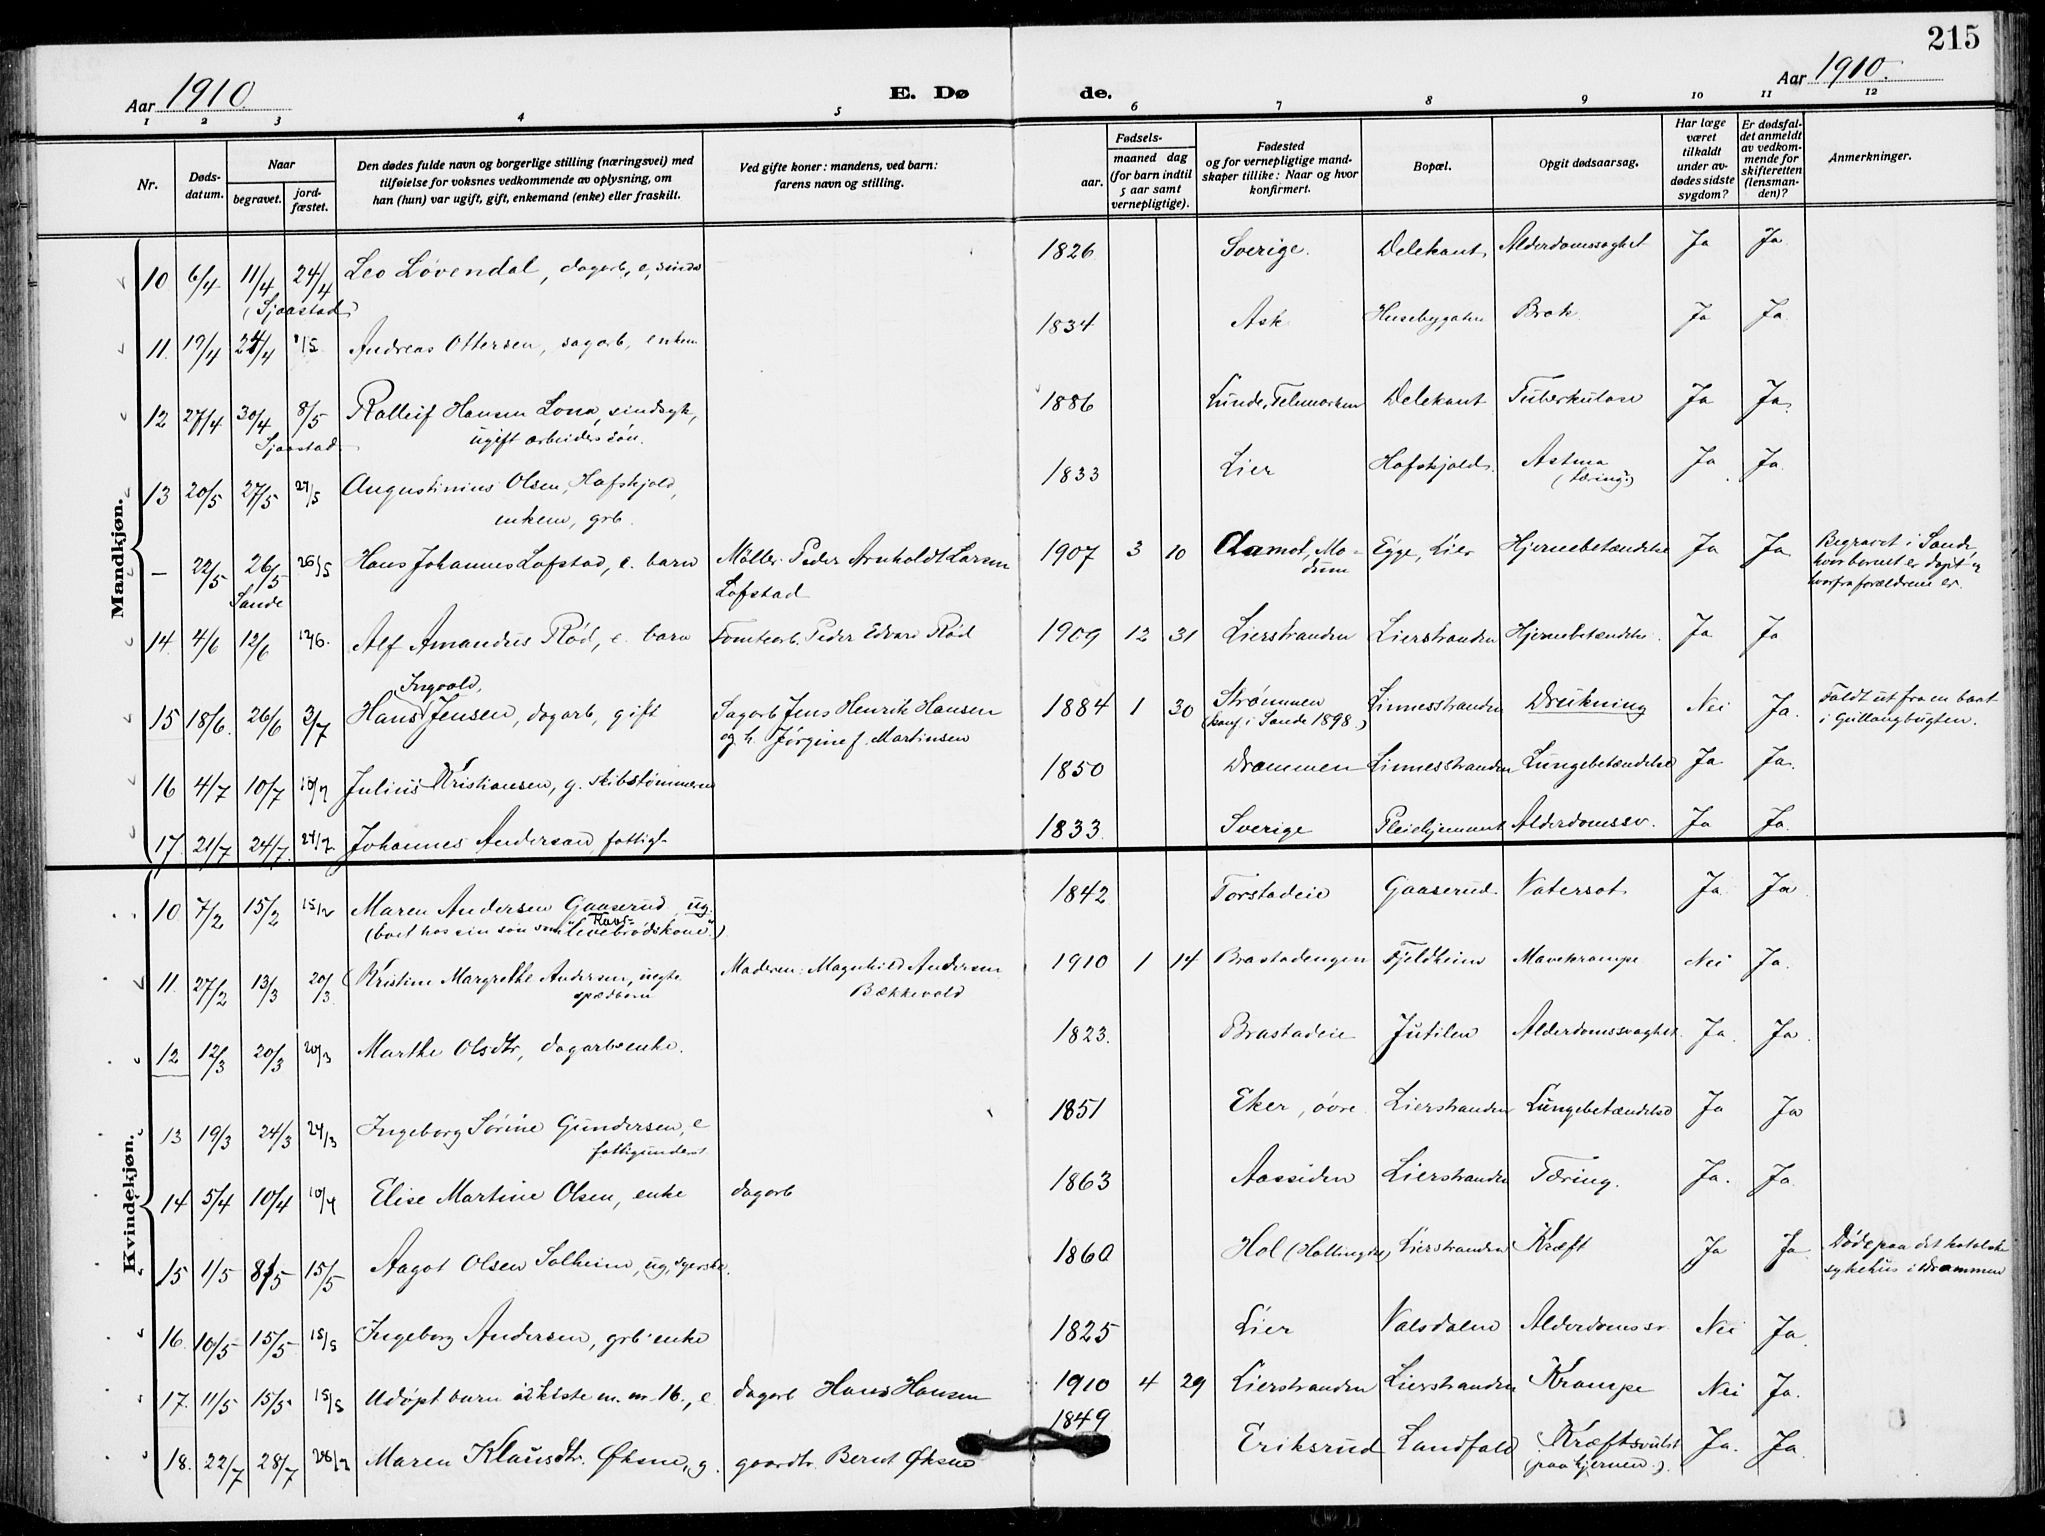 215
Aar 1910 E. Dø de. Aar 1910.
1 2 3 4 5 6 7 8 9 10 11 12
Nr.
Døds-
datum.
Naar
begravet.
jord-
fæstet.
Den dødes fulde navn og borgerlige stilling (næringsvei) med
tilføielse for voksnes vedkommende av oplysning, om
han (hun) var ugift, gift, enkemand (enke) eller fraskilt.
Ved gifte koner: mandens, ved barn:
farens navn og stilling.
Fødsels-
aar.
maaned dag
(for barn indtil
5 aar samt
vernepligtige).
Fødested
og for vernepligtige mand-
skaper tillike: Naar og hvor
konfirmert.
Bopæl.
Opgit dødsaarsag.
Har læge
været
tilkaldt
under av-
dødes sidste
sygdom?
Er dødsfal-
det anmeldt
av vedkom-
mende for
skifteretten
(lensman-
den)?
Anmerkninger.
Mandkjøn.
10 6/4 11/4 24/4 Leo Løvendal, dagarb, e, sinds 1826 Sverige. Delekant Alderdomssvaghet Ja Ja
(Sjaastad)
11. 19/4 24/4 1/5 Andreas Ottersen, sagarb, enkem 1834 Ask Husebygaten Brok Ja Ja
12 27/4 30/4 8/5 Rolleif Hansen Lona, sindsyk, 1886 Lunde, Telemarken Delekant Tuberkulose Ja Ja
Sjaastad ugift arbeiders søn.
13 20/5 27/5 27/5 Augustinius Olsen, Hafskjold, 1833 Lier Hafskjold Astma Ja Ja
enkem, grb. (tæring)
— 22/5 26/5 26/5 Hans Johannes Lofstad, e. barn Møller Peder Arnholdt Larsen 1907 3 10 Aamot, Mo- Egge, Lier Hjernebetændelse Ja Ja Begravet i Sande,
Sande Lofstad dum hvor barnet er døpt og
hvorfra forældrene er.
14. 4/6 12/6 12/6. Alf Amandus Rød, e. barn Tomtearb. Peder Edvard Rød 1909 12 31 Lierstranden Lierstranden Hjernebetændelse. Ja Ja
Ingvald,
15 18/6. 26/6 3/7 Hans Jensen, dagarb, gift Sagarb Jens Henrik Hansen 1884 1 30 Strømmen Linnesstranden Drukning Nei Ja. Faldt ut fra en baat
og h. Jørgine f. Martinsen (konf. i Sande 1898.) i Gullaugbugten.
16 4/7 10/7 10/7 Julius Kristiansen, g. skibstømmerm 1850 Drammen Linnesstranden Lungebetændelse Ja Ja.
17. 21/7 24/7. 24/7 Johannes Anderson, fattigl. 1833 Sverige Pleiehjemmet Alderdomssv. Ja Ja.
Kvindekjøn.
10 7/2 15/2 15/2 Maren Andersen Gaaserud, ug. 1842 Torstadeie Gaaserud Vatersot Ja Ja
Kaar-
(boet hos sin søn som "levebrødskone")
11. 27/2 13/3 20/3. Kristine Margrethe Andersen, uegte Moderen: Magnhild Andersen 1910 1 14 Brastadengen Fjeldheim Mavekrampe Nei Ja.
spædbarn Bækkevold
12 12/3 20/3 20/3 Marthe Olsdtr, dagarbs enke. 1823. Brastadeie Jutilen Alderdomssvaghet Ja Ja
13 19/3 24/3 24/3 Ingeborg Sørine Gundersen, e 1851 Eker, øvre Lierstranden Lungebetændelse Ja Ja
fattigunderst
14 5/4 10/4 10/4 Elise Martine Olsen, enke dagarb 1863 Aassiden Lierstranden Tæring. Ja. Ja
15 1/5 8/5 15/5 Aagot Olsen Solheim, ug, syerske. 1860 Hol (Hallingdal) Lierstranden Kræft Ja Ja Døde paa det katolske
sykehus i Drammen
16. 10/5 15/5 15/5 Ingeborg Andersen, grb enke 1825 Lier Valsdalen Alderdomssv Nei Ja
17. 11/5 15/5 15/5 Udøpt barn i kiste m. nr 16., e. dagarb Hans Hansen 1910 4 29 Lierstranden Lierstranden Krampe Nei Ja.
18. 22/7 28/7 28/7 Maren Klausdtr. Øksne, g. gaardbr. Bernt Øksne 1849 Eriksrud Landfald Kræftsvulst Ja. Ja
(paa hjernen.)